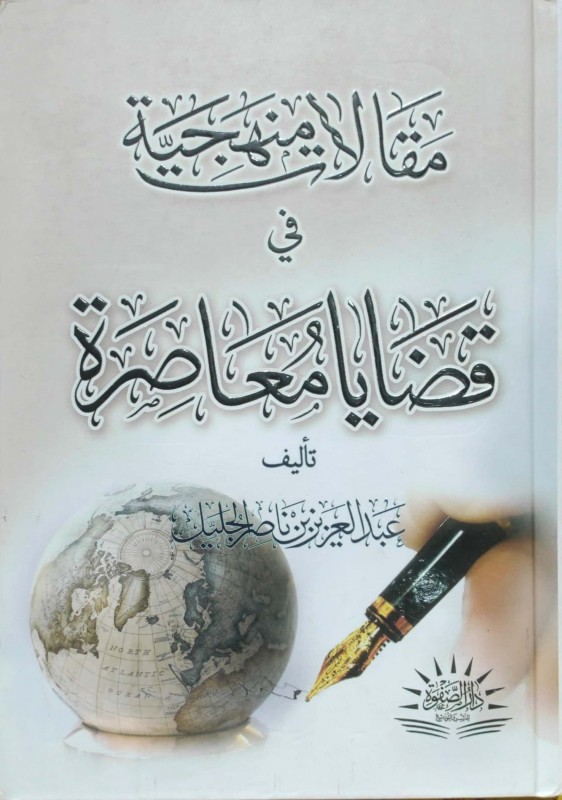 مقالات منهجية
في
قضايا معاصرة
تأليف
عبد العزيز بن ناصر الجليل
NORTH
ATLANTIC
OCEAN
دار الصفوة